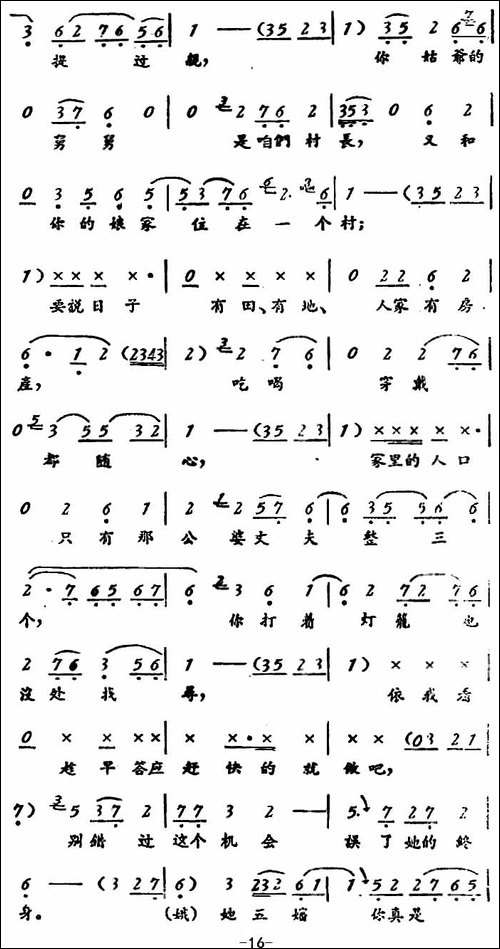 3 62 76 56 | 1 — (35 23 | 1) 35 2 6 7 6
提 过 亲, 你 姑 爷的
0 37 6 0 | 0 3 2 76 2 | 353 0 6 2
舅 舅 是 咱們 村 長, 又 和
0 3 5 6 5 | 53 76 6 2. 6 | 1 — (35 23
你 的 娘 家 住 在 一 个 村;
1) ×× × ו | 0 × × × × | 0 22 6 2
要說 日 子 有 田、有 地、 人家 有 房
6 • 1 2 (2343 | 2) 3 2 7 6 | 0 2 2 76
産, 吃 喝 穿 戴
0 5 3 55 32 | 1 — (35 23 | 1) ××× × ו
都 随 心, 家里的 人 口
0 2 6 1 | 2 1 2 57 6 | 6 35 56 6
只 有 那 公 婆 丈 夫 整 三
2 • 7 65 67 | 6 2 3 6 1 | 6 2 72 76
个, 你 打 着 灯 籠 也
2 76 3 56 | 1 — (35 23 | 1) × × ×
沒 处 找 尋, 依 我 看
0 × × ×× | × ו× × × | × × (03 21
趁 早 答应 赶 快 的 就 做 吧,
7) 3 5 37 2 | 77 3 2 — | 5. 7 27 2
别 錯 过 这个 机 会 誤 了 她的 終
6 — (3 27 | 6) 3 232 61 | 1 52 27 65
身。 (娥) 她 五 嬸 你 真 是
-16-